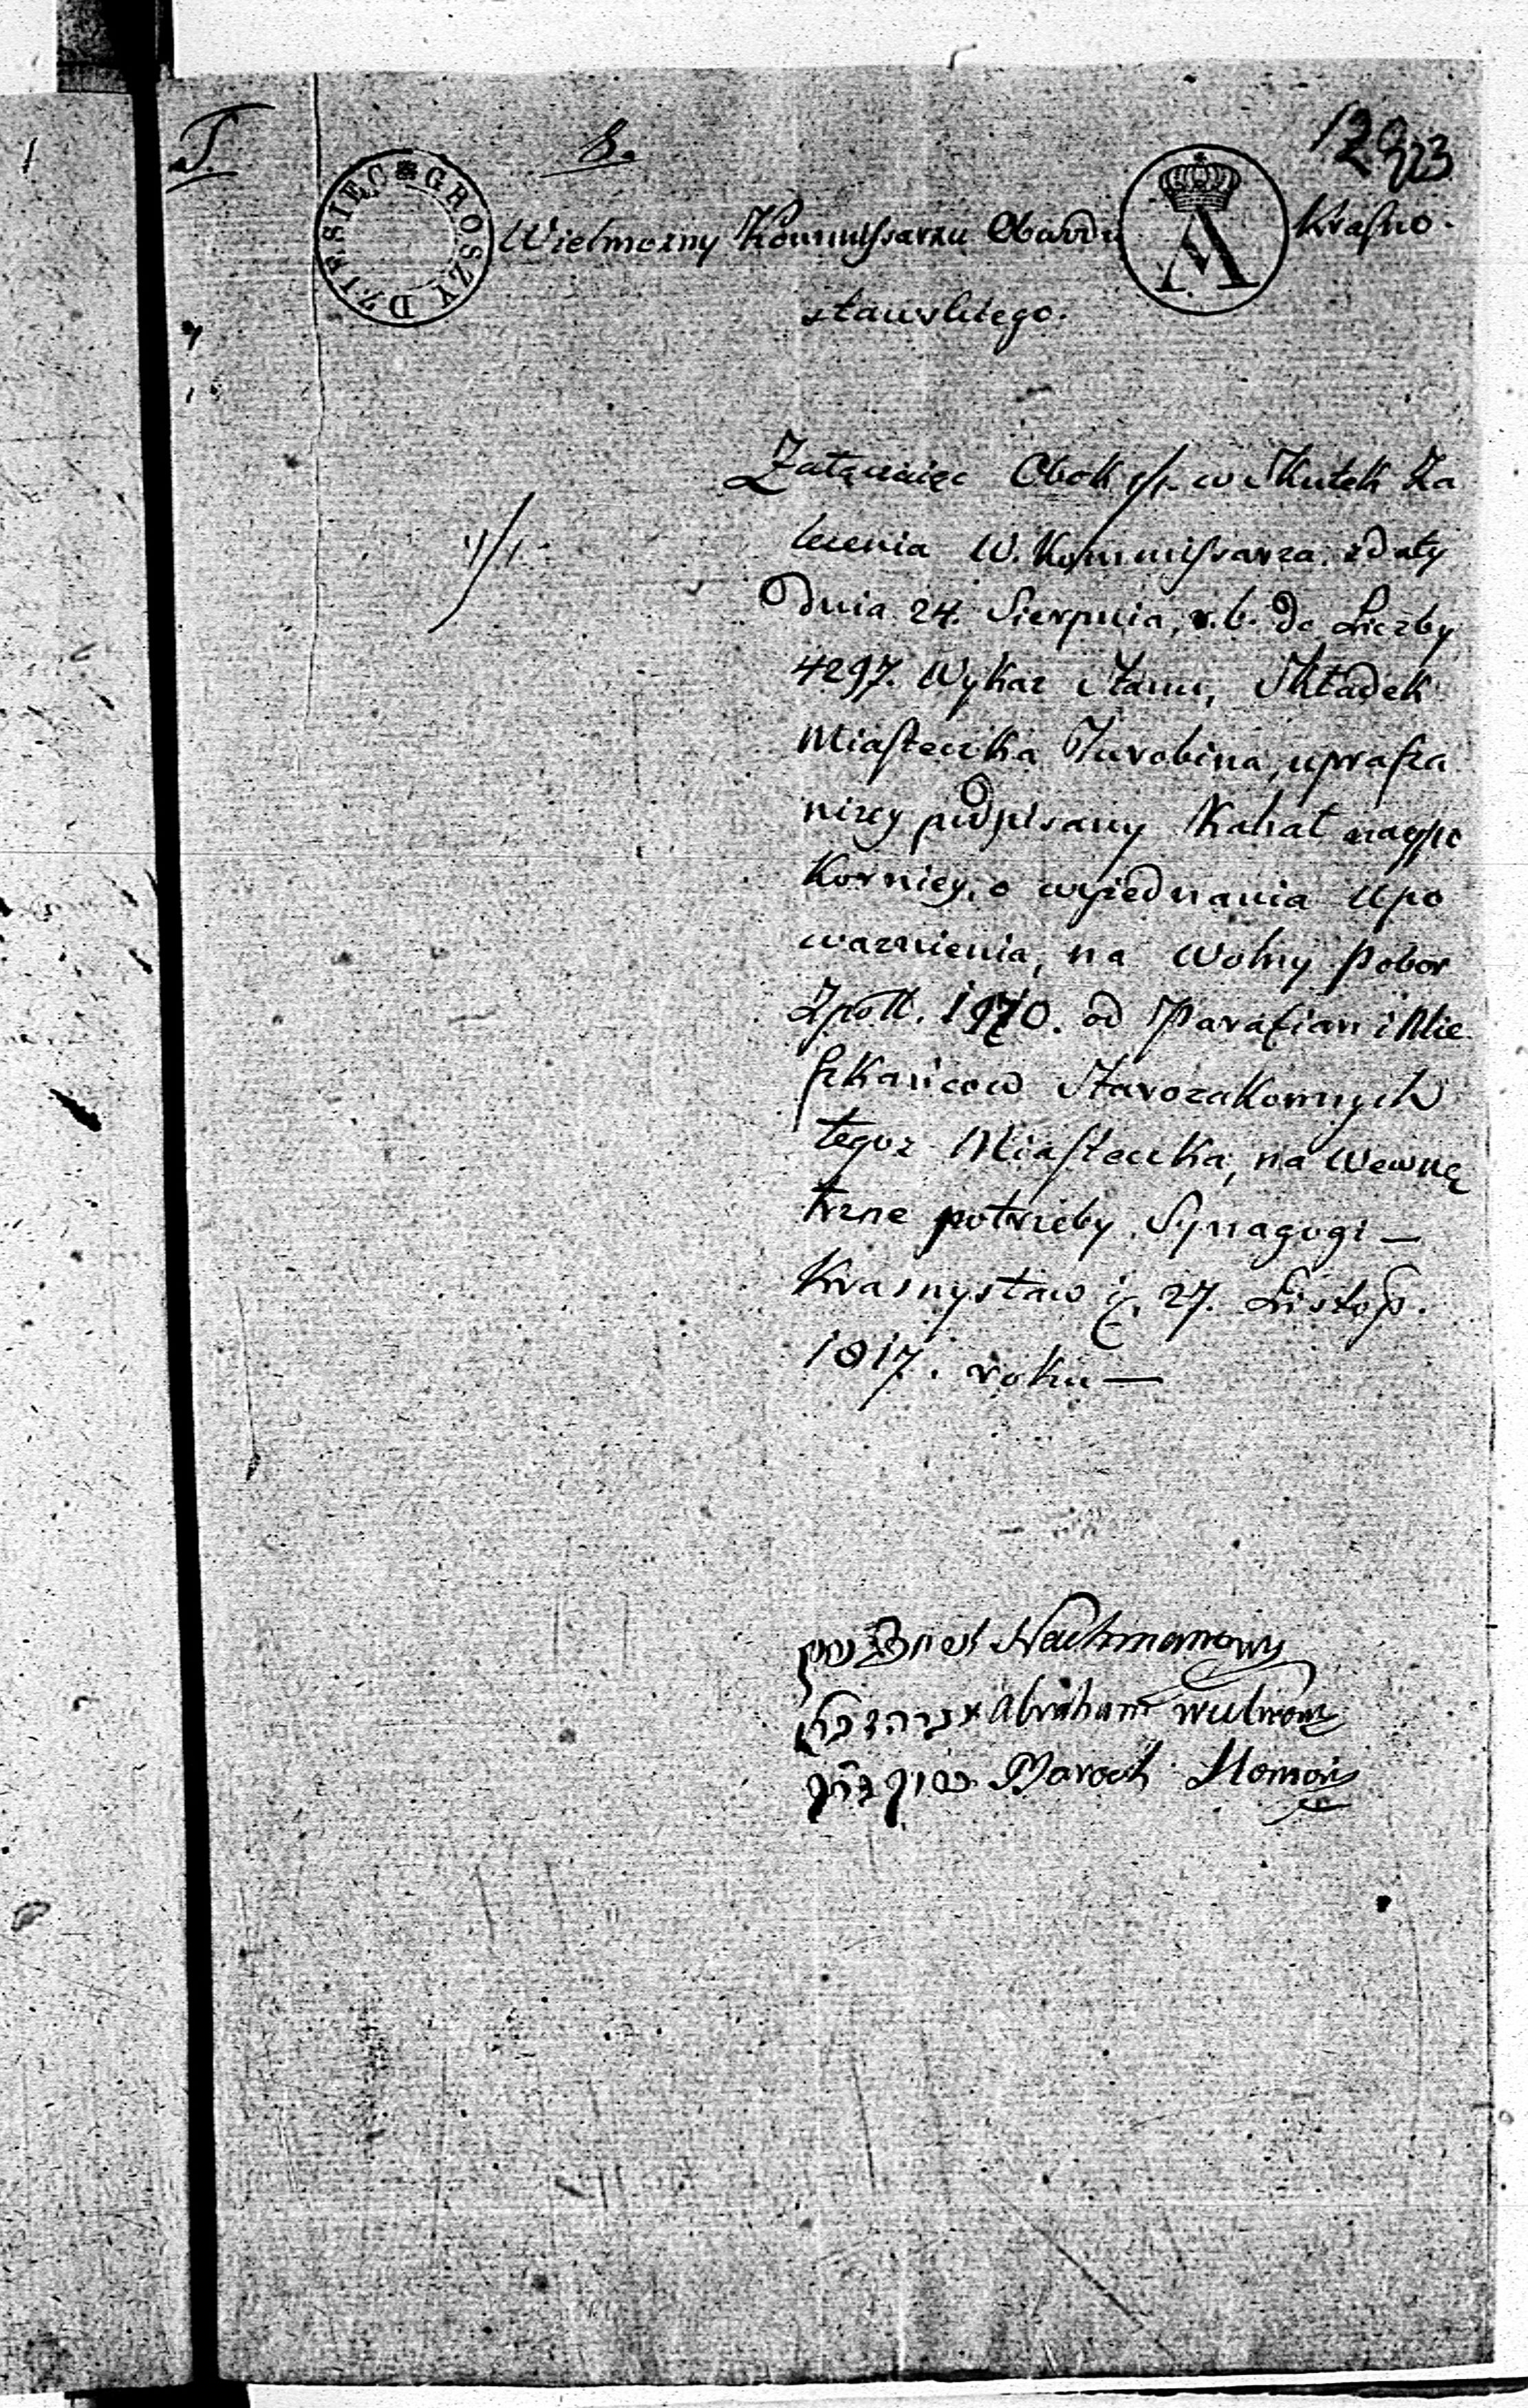 I
8.
DZIESIĘC GROSZY
Wielmozny Kommissarzu Obwodu Krasno-
stawskiego.
Załączaiąc Obok ·/. w Skutek Za
·/.
lecenia W. Kommissarza zdaty
dnia 24. Sierpnia, r.b. do Liczby
4297. Wykaz Stanu, Składek
Miasteczka Turobina, uprasza
nizey podpisany Kahał naypo
korniey, o wyiednania upo
waznienia, na wolny pobor
Zpoll. 1970. od Parafian i Mie
szkańcow Starozakonnych
tegoz Miasteczka, na wewnę
trzne potrzeby Synagogi —
Krasnystaw d. 27. Listop.
1817. roku —
Nachmanowy
Abraham
Baroch